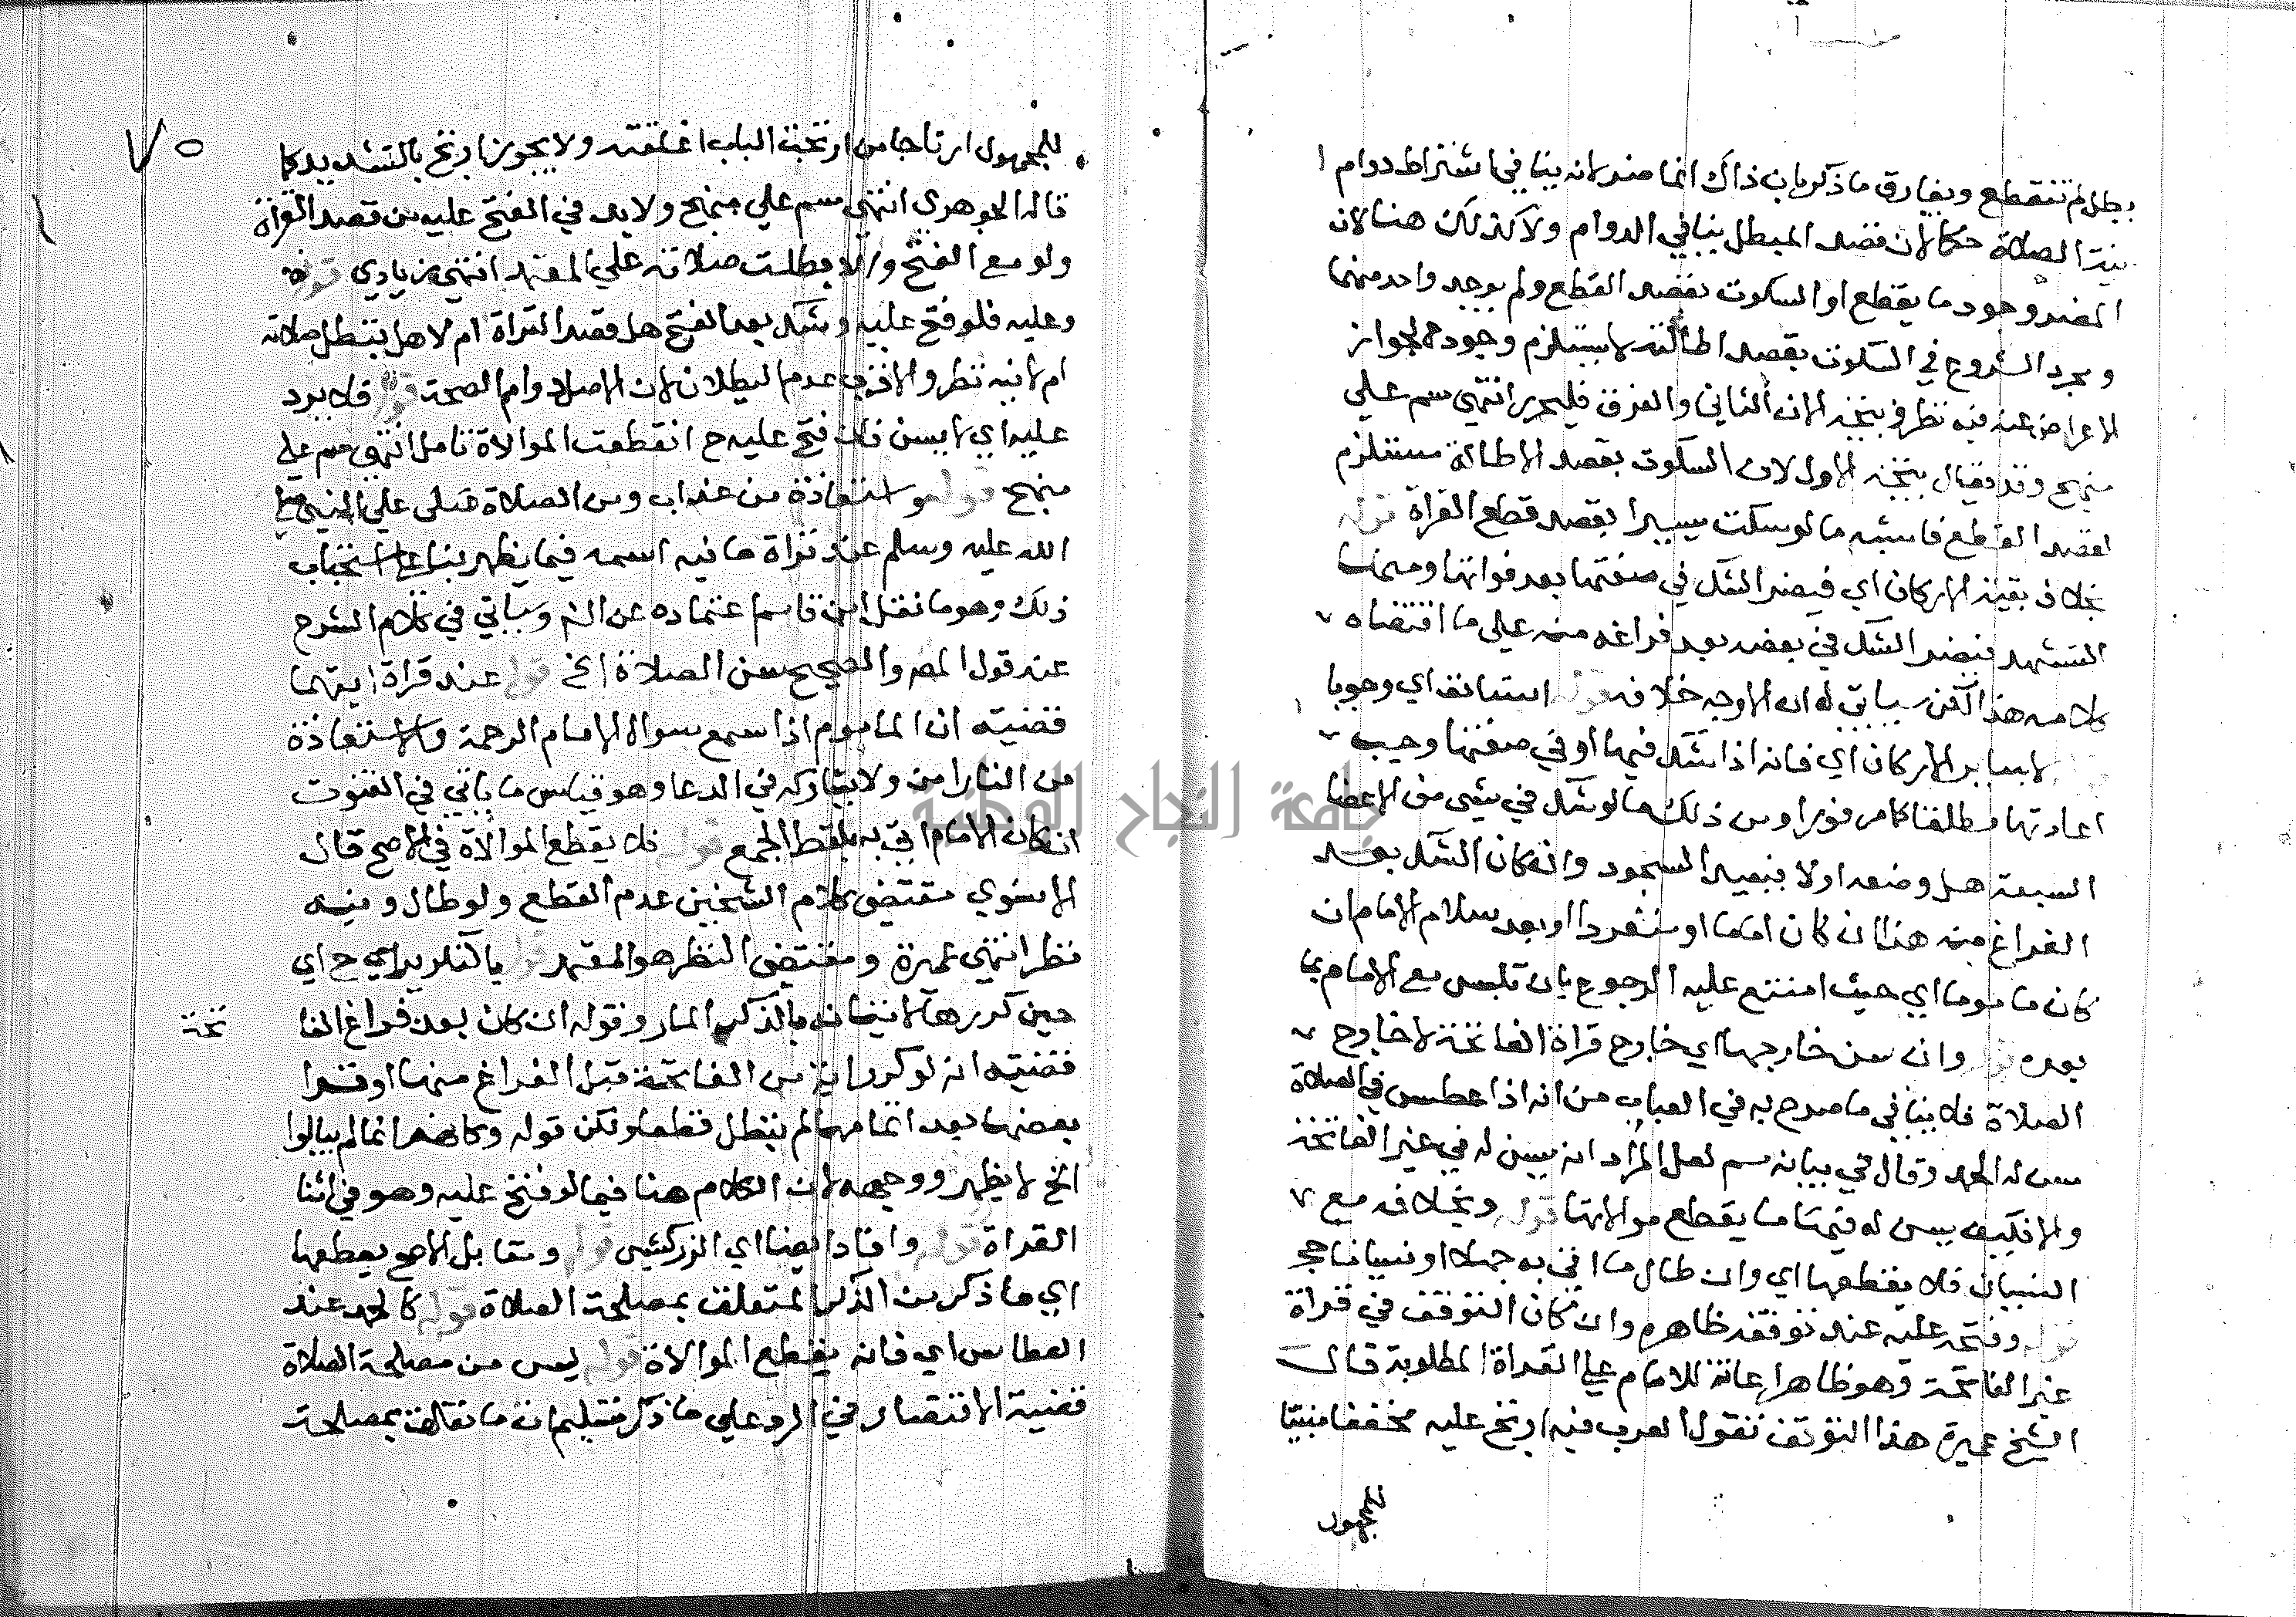 بطل لم تنقطع ويفارق ما ذكر بان ذاك انما ضر لانه ينافي اشتراط دوام ا
نية الصلاة حكما لان قصد المبطل ينافي الدوام ولا كذلك هنا لان
المضر وجود ما يقطع او السكوت بقصد القطع ولم يوجد واحد منهما
ومجرد الشروع في السكوت بقصد اطالته لا يستلزم وجودها لجواز
الاعراض عنه فيه نظر ويتجه الان الثاني والفرق فليحرر انتهى سم علي
منهج وقد يقال يتجه الاول لان السكوت بقصد الاطالة مستلزم
لقصد القطع فاشبه ما لو سكت يسيرا بقصد قطع القراة قوله
بخلاف بقية الاركان اي فيضر الشك في صفتها بعد فراغها ومنها
التشهد فيضر الشك في بعضه بعد فراغه منه علي ما اقتضاه
كلامه هذا لكن سياتي له ان الاوجه خلافه قوله استانف اي وجوبا
لسائر الاركان اي فانه اذا شك فيها او في صفتها وجب
اعادتها مطلقا كما مر فورا ومن ذلك ما لو شك في شي من الاعضا
السبعة هل وضعه اولا فيعيد السجود وان كان الشك بعد
الفراغ منه هذا ان كان اماما او منفردا او بعد سلام الامام ان
كان ماموما اي حيث امتنع عليه الرجوع بان تلبس مع الامام بما
بعده قوله وان سن خارجها اي خارج قراة الفاتحة لا خارج
الصلاة فلا ينافي ما صرح به في العباب من انه اذا عطس في الصلاة
سن له الحمد وقال في بيانه سم لعل المراد انه يسن له في غير الفاتحة
والا فكيف يسن له فيها ما يقطع موالاتها قوله وبخلافه مع
النسيان فلا يقطعها اي وان طال ما اتى به جهلا او نسيانا حج
قوله وفتحه عليه عند توقفه ظاهره وان كان التوقف في قراة
غير الفاتحة وهو ظاهر اعانة للامام علي القراة المطلوبة قال
الشيخ عميرة هذا التوقف تقول العرب فيه ارتج عليه مخففا مبنيا
للمجهول
٧٥
للمجهول ارتاجا من ارتجت الباب اغلقته ولا يجوز ارتج بالتشديد كما
قاله الجوهري انتهى سم علي منهج ولا بد في الفتح عليه من قصد القراة
ولو مع الفتح والا بطلت صلاته علي المعتمد انتهى زيادي قوله
وعليه فلو فتح عليه وشك بعد الفتح هل قصد القراة ام لا هل تبطل صلاته
ام لا فيه نظر والاقرب عدم البطلان لان الاصل دوام الصحة قوله فلا يرد
عليه اي لا يسن فان فتح عليه ح انقطعت الموالاة تامل انتهى سم علي
منهج قوله واستعاذة من عذاب ومن الصلاة صلى علي النبي صلي
الله عليه وسلم عند قراة ما فيه اسمه فيما يظهر بناء علي استحباب
ذلك وهو ما نقل ابن قاسم اعتماده عن الشم وسياتي في كلام الشرح
عند قول المص والصحيح سن الصلاة الخ قوله عند قراة ايتهما
قضيته ان الماموم اذا سمع سوال الامام الرحمة والاستعاذة
من النار امن ولا يشاركه في الدعا وهو قياس ما ياتي في القنوت
ان كان الامام اتى به بلفظ الجمع قوله فلا يقطع الموالاة في الاصح قال
الاسنوي مقتضى كلام الشيخين عدم القطع ولو طال وفيه
نظر انتهى عميرة ومقتضى النظر هو المعتمد قوله
حين كررها وقوله ان كان بعد فراغ الفا
تحة
قضيته انه لو كرر اية من الفاتحة قبل الفراغ منها او قرا
بعضها بعد اتمامها لم تبطل قطعا ولكن قوله وكانهم انما لم يبالوا
الخ لا يظهر ووجهه لان الكلام هنا فيما لو فتح عليه وهو في اثنا
القراة قوله وافاد ايضا اي الزركشي قوله ومقابل الاصح يقطعها
اي ما ذكر من الذكر المتعلق بمصلحة الصلاة قوله كالحمد عند
العطاس اي فانه يقطع الموالاة قوله ليس من مصلحة الصلاة
قضية الاقتصار في الرد علي ما ذكر تسليم ان ما تعلق بمصلحة
جامعة النجاح الوطنية